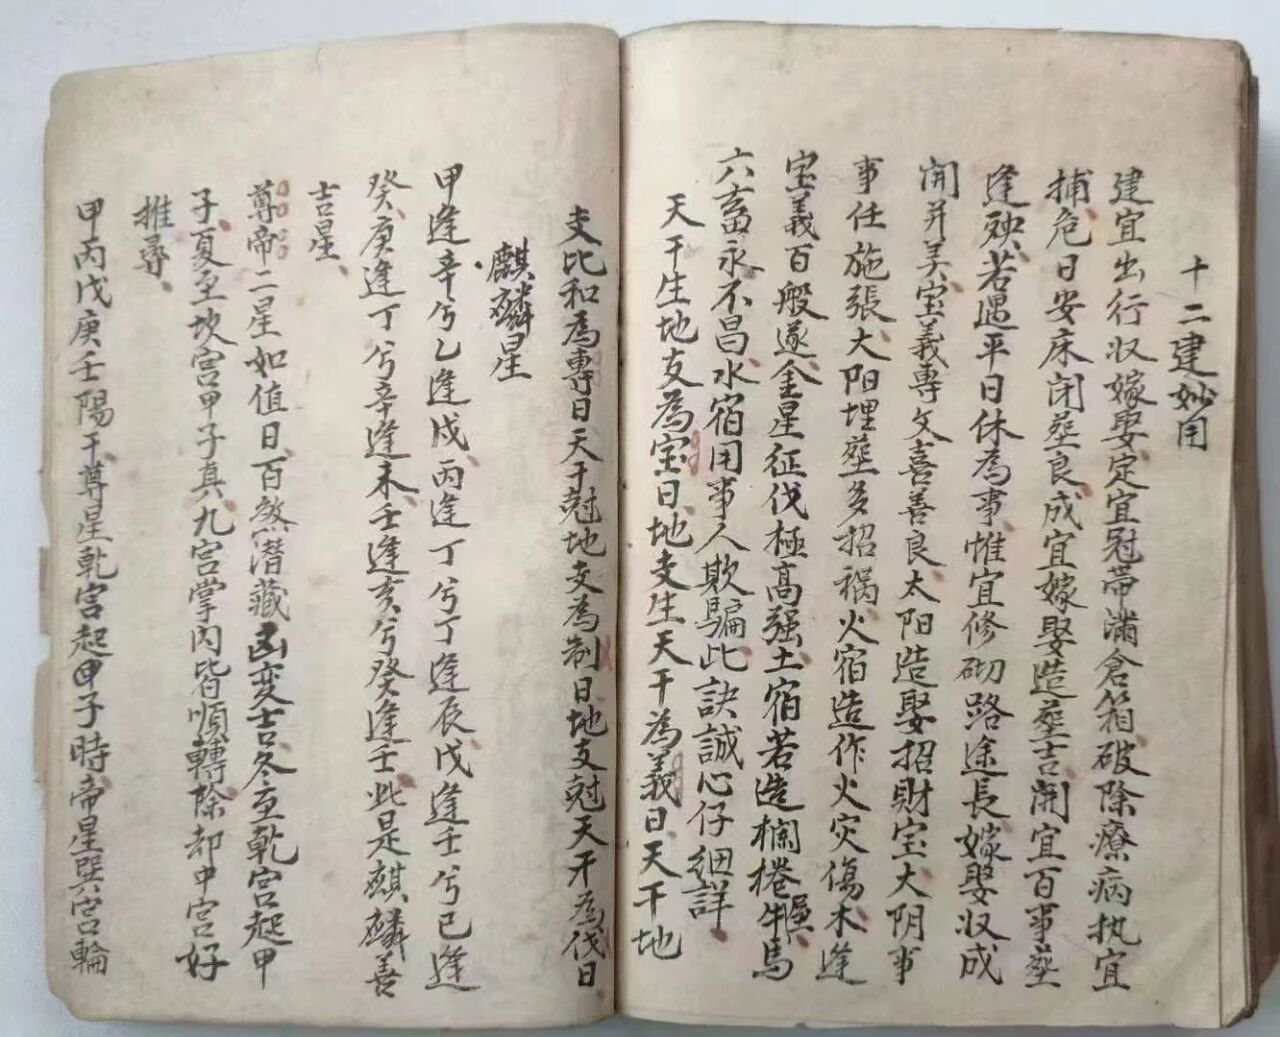 十二建妙用
建宜出行収嫁娶定宜冠带满倉箱破除療病执宜
捕危日安床闭塟良成宜嫁娶造塟吉開宜百事塟
逢殃若遇平日休為事惟宜修砌路途長嫁娶収成
開并美宝義專文喜善良太阳造娶招財宝大阴事
事任施張大阳埋塟多招禍火宿造作火灾傷木逢
宝義百般遂金星征伐極高强土宿若造欄棬牛馬
六畜永不昌水宿用事人欺騙此訣誠心仔细詳
天干生地支為宝日地支生天干為義日天干地
支比和為專日天干尅地支為制日地支尅天干為伐日
麒麟星
甲逢辛兮乙逢戍丙逢丁兮丁逢辰戊逢壬兮己逢
癸庚逢丁兮辛逢未壬逢亥兮癸逢壬此是麒麟善
吉星
尊帝二星如值日百煞潛藏凶变吉冬至乾宫起甲
子夏至坎宫甲子真九宫掌內皆順轉除却中宫好
推尋
甲丙戊庚壬陽干尊星乾宫起甲子時帝星巽宫輪